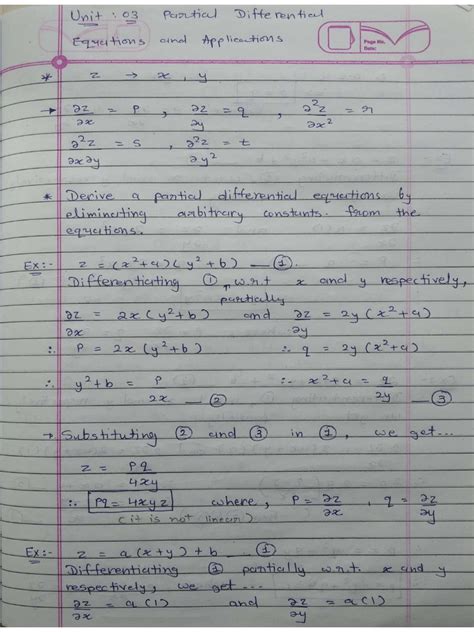 Unit : 03 Partial Differential
Equations and Applications
Page No.
Date:
* z → x, y
→ ∂z/∂x = p, ∂z/∂y = q, ∂²z/∂x² = r
∂²z/∂x∂y = s, ∂²z/∂y² = t
* Derive a partial differential equations by
eliminating arbitrary constants from the
equations.
Ex:- z = (x²+a)(y²+b) — ①.
Differentiating ① w.r.t x and y respectively,
partially
∂z/∂x = 2x(y²+b) and ∂z/∂y = 2y(x²+a)
∴ P = 2x(y²+b) ∴ q = 2y(x²+a)
∴ y²+b = P/2x — ② ∴ x²+a = q/2y — ③
→ Substituting ② and ③ in ①, we get...
z = Pq/4xy
∴ Pq = 4xyz where, P = ∂z/∂x, q = ∂z/∂y
(it is not linear)
Ex:- z = a(x+y)+b — ①
Differentiating ① partially w.r.t. x and y
respectively, we get...
∂z/∂x = a(1) and ∂z/∂y = a(1)